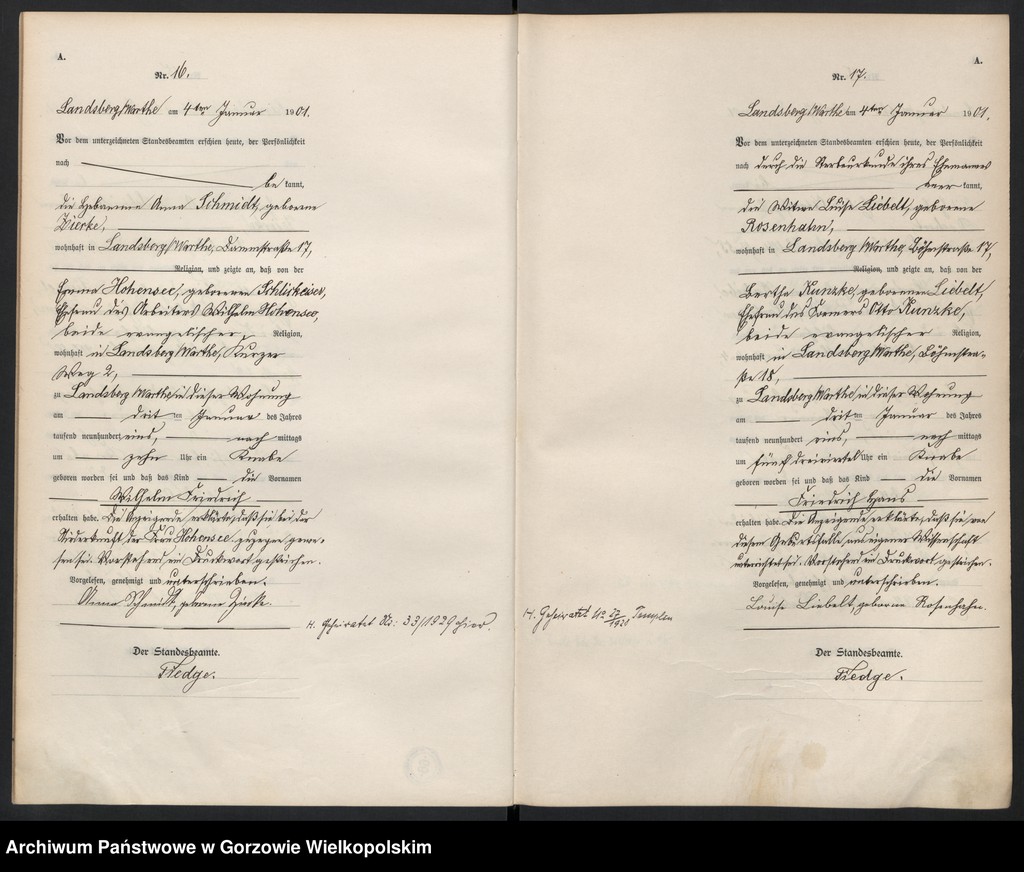 A.
Nr. 16.
Landsberg/Warthe am 4ten Januar 1901.
Vor dem unterzeichneten Standesbeamten erschien heute, der Persönlichkeit
nach
be kannt,
die Hebamme Anna Schmidt, geborene
Zierke,
wohnhaft in Landsberg/Warthe, Dammstraße 17,
Religion, und zeigte an, daß von der
Emma Hohensee, geborenen Schlickeiser,
Ehefrau des Arbeiters Wilhelm Hohensee,
beide evangelischer Religion,
wohnhaft in Landsberg/Warthe, Kurzer
Weg 2,
zu Landsberg/Warthe in dieser Wohnung
am drit ten Januar des Jahres
tausend neunhundert eins, nach mittags
um zehn Uhr ein Knabe
geboren worden sei und daß das Kind die Vornamen
Wilhelm Friedrich
erhalten habe. Die Anzeigende erklärte, daß sie bei der
Niederkunft der Frau Hohensee zugegen gewe-
sen sei. Vorstehend ein Druckwort gestrichen.
Vorgelesen, genehmigt und unterschrieben.
Anna Schmidt, geborene Zierke.
H. Geheiratet Nr: 33/1929 hier.
Der Standesbeamte.
Fredge.
A.
Nr. 17.
Landsberg/Warthe am 4ten Januar 1901.
Vor dem unterzeichneten Standesbeamten erschien heute, der Persönlichkeit
nach durch die Sterbeurkunde ihres Ehemannes
aner kannt,
die Witwe Luise Liebelt, geborene
Rosenhahn,
wohnhaft in Landsberg/Warthe, Böhmstraße 17,
Religion, und zeigte an, daß von der
Bertha Kunzke, geborenen Liebelt,
Ehefrau des Formers Otto Kunzke,
beide evangelischer Religion,
wohnhaft in Landsberg/Warthe, Böhmstra-
ße 18,
zu Landsberg/Warthe in dieser Wohnung
am drit ten Januar des Jahres
tausend neunhundert eins, nach mittags
um fünf dreiviertel Uhr ein Knabe
geboren worden sei und daß das Kind die Vornamen
Friedrich Hans
erhalten habe. Die Anzeigende erklärte, daß sie von
diesem Geburtsfalle aus eigener Wissenschaft
unterrichtet sei. Vorstehend ein Druckwort gestrichen.
Vorgelesen, genehmigt und unterschrieben.
Louise Liebelt, geborne Rosenhahn.
H. Geheiratet Nr 27/1928 Templin
Der Standesbeamte.
Fredge.
Archiwum Państwowe w Gorzowie Wielkopolskim